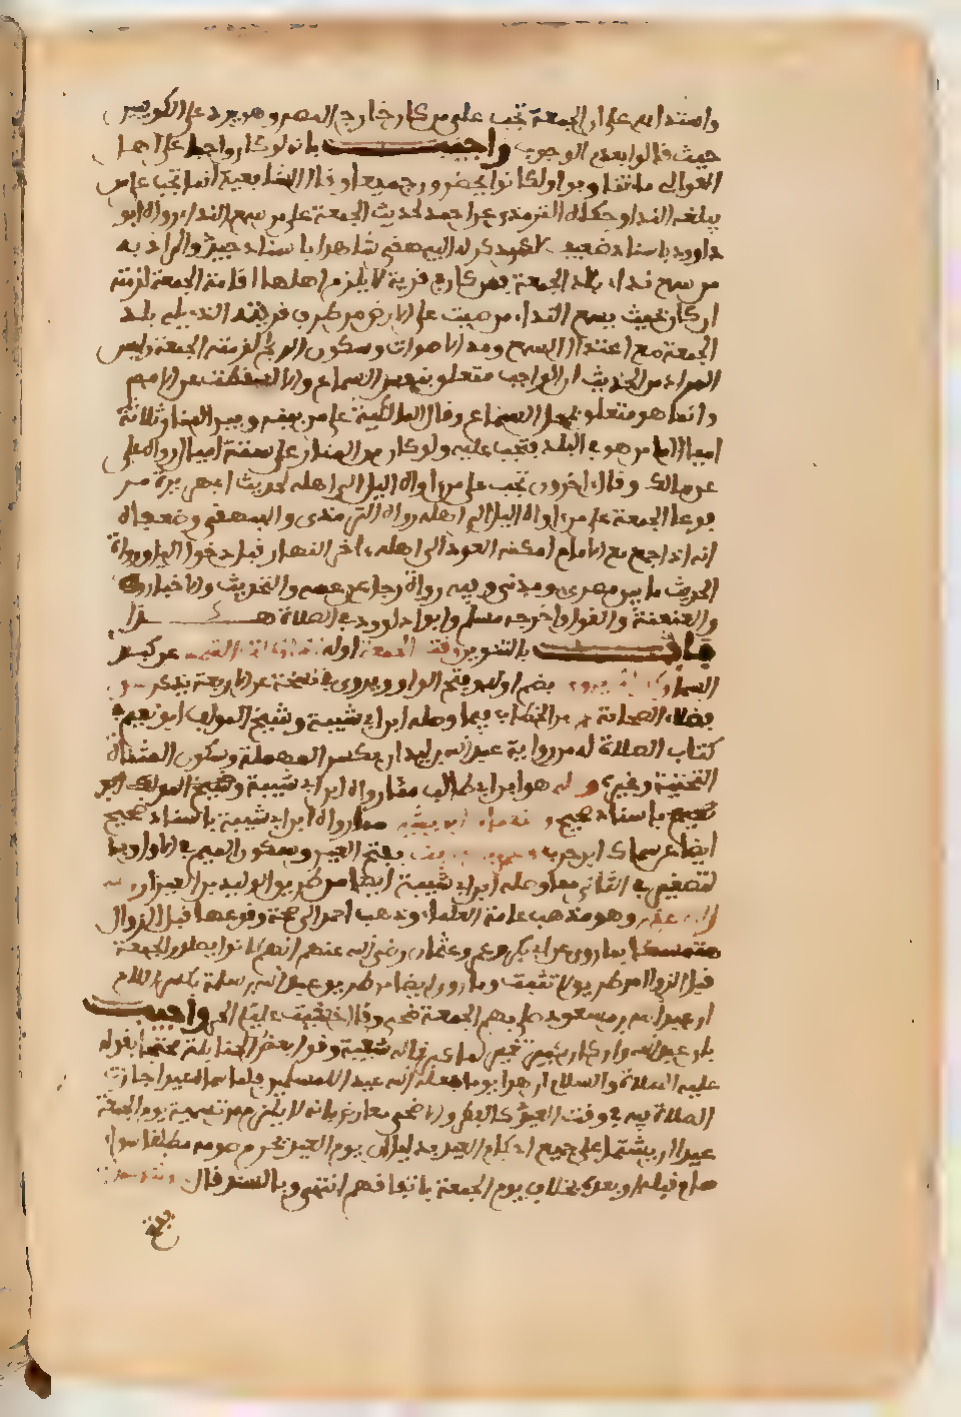 واستدل به على ان الجمعة تجب على من كان خارج المصر وهو يرد على الكوفيين
حيث قالوا بعدم الوجوب واجيب بانه لو كان واجبا على اهل
العوالي ما تناوبوا ولكانوا يحضرون جميعا وقال الشافعية انما تجب على من
يبلغه النداء وحكاه الترمذي عن احمد لحديث الجمعة على من سمع النداء رواه ابو
داوود باسناد ضعيف لكن ذكر له البيهقي شاهدا باسناد جيد والمراد به
من سمع نداء بلد الجمعة فمن كان في قرية لا يلزم اهلها اقامة الجمعة لزمته
ان كان بحيث يسمع النداء من صيت على الارض من طرف قريته الذي يلي بلد
الجمعة مع اعتدال السمع وهدء الاصوات وسكون الريح لزمته الجمعة وليس
المراد من الحديث ان الواجب متعلق بنفس السماع والا لسقطت عن الاصم
وانما هو متعلق بمحل السماع وقال المالكية على من بينه وبين المنار ثلاثة
اميال اما من هو في البلد فتجب عليه ولو كان من المنار على ستة اميال رواه علي
عن مالك وقال اخرون تجب على من اواه الليل الى اهله لحديث ابي هريرة مر
فوعا الجمعة على من اواه الليل الى اهله رواه الترمذي والبيهقي وضعفاه
انه اذا جمع مع الامام امكنه العود الى اهله اخر النهار قبل دخول الليل ورواة
الحديث ما بين مصري ومدني وفيه رواة رجل عن عمه والتحديث والاخبار
والعنعنة والقول واخرجه مسلم وابو داوود في الصلاة هـــذا
باب بالتنوين وقت الجمعة اوله اذا زالت الشمس عن كبد
السماء وكذلك يروى بضم اوله وفتح الواو ويروى في نسخة عن الاربعة يذكر عن
فضلاء الصحابة عمر بن الخطاب فيما وصله ابن ابي شيبة وشيخ المولف ابو نعيم في
كتاب الصلاة له من رواية عبد الله بن سيدان بكسر المهملة وسكون المثناة
التحتية وغيره وعلي هو ابن ابي طالب مما رواه ابن ابي شيبة وشيخ المولف ابو
نعيم باسناد صحيح والنعمان ابن بشير مما رواه ابن ابي شيبة باسناد صحيح
ايضا عن سماك ابن حرب وعمرو بن حريث بفتح العين وسكون الميم في الاول وبا
لتصغير في الثاني مما وصله ابن ابي شيبة ايضا من طريق الوليد بن العيزار رضي
الله عنهم وهو مذهب عامة العلماء وذهب احمد الى صحة وقوعها قبل الزوال
متمسكا بما روي عن ابي بكر وعمر وعثمان رضي الله عنهم انهم كانوا يصلون الجمعة
قبل الزوال من طريق لا تثبت وما روي ايضا من طريق عبد الله بن سلمة بكسر اللام
ان عبد الله بن مسعود صلى بهم الجمعة ضحى وقال خشيت عليكم الحر واجيب
بان عبد الله وان كان كبيرا تغير لما كبر قاله شعبة وقول بعض الحنابلة محتجا بقوله
عليه الصلاة والسلام ان هذا يوم جعله الله عيدا للمسلمين فلما سماه عيدا جازت
الصلاة فيه في وقت العيد كالفطر والاضحى معارض بانه لا يلزم من تسمية يوم الجمعة
عيدا ان يشتمل على جميع احكام العيد بدليل ان يوم العيد يحرم صومه مطلقا سواء
صام قبله او بعده بخلاف يوم الجمعة باتفاقهم انتهى وبالسند قال